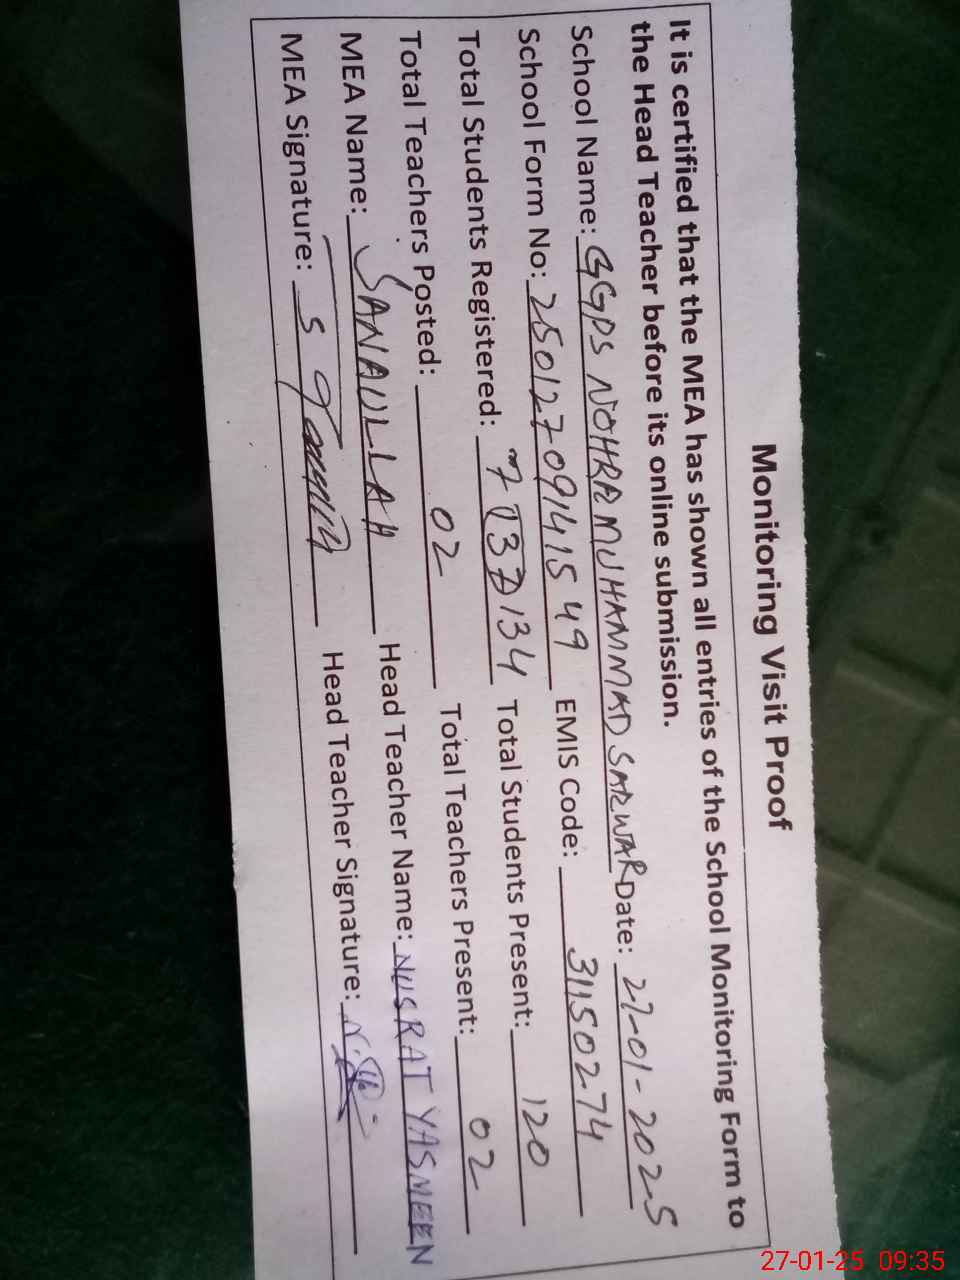 Monitoring Visit Proof
It is certified that the MEA has shown all entries of the School Monitoring Form to
the Head Teacher before its online submission.
School Name: GGPS NOHRA MUHAMMAD SARWAR Date: 27-01-2025
School Form No: 250127091415 49 EMIS Code: 31150274
Total Students Registered: 134 Total Students Present: 120
Total Teachers Posted: 02 Total Teachers Present: 02
MEA Name: SANAULLAH Head Teacher Name: NUSRAT YASMEEN
MEA Signature: Head Teacher Signature:
27-01-25 09:35